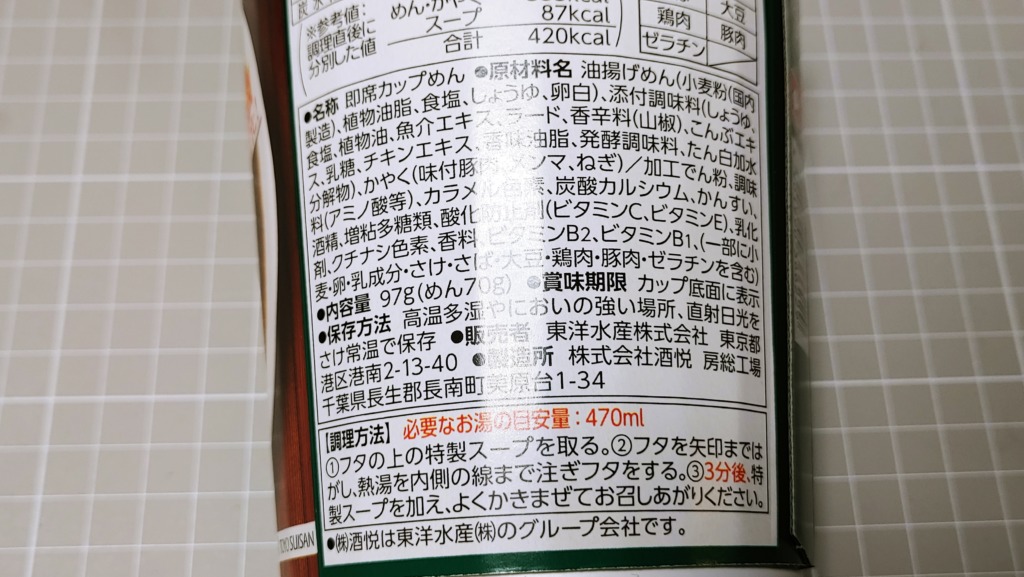 ※参考値:
調理直後に
分別した値
めん・かやく
スープ 87kcal
合計 420kcal
大豆
鶏肉 豚肉
ゼラチン
●名称 即席カップめん ●原材料名 油揚げめん(小麦粉(国内
製造)、植物油脂、食塩、しょうゆ、卵白)、添付調味料(しょうゆ、
食塩、植物油、魚介エキス、ラード、香辛料(山椒)、こんぶエキ
ス、乳糖、チキンエキス、香味油脂、発酵調味料、たん白加水
分解物)、かやく(味付豚肉、メンマ、ねぎ)/加工でん粉、調味
料(アミノ酸等)、カラメル色素、炭酸カルシウム、かんすい、
酒精、増粘多糖類、酸化防止剤(ビタミンC、ビタミンE)、乳化
剤、クチナシ色素、香料、ビタミンB2、ビタミンB1、(一部に小
麦・卵・乳成分・さけ・さば・大豆・鶏肉・豚肉・ゼラチンを含む)
●内容量 97g(めん70g) ●賞味期限 カップ底面に表示
●保存方法 高温多湿やにおいの強い場所、直射日光を
さけ常温で保存 ●販売者 東洋水産株式会社 東京都
港区港南2-13-40 ●製造所 株式会社酒悦 房総工場
千葉県長生郡長南町美原台1-34
【調理方法】 必要なお湯の目安量:470ml
①フタの上の特製スープを取る。②フタを矢印までは
がし、熱湯を内側の線まで注ぎフタをする。③3分後、特
製スープを加え、よくかきまぜてお召しあがりください。
●㈱酒悦は東洋水産㈱のグループ会社です。
TOYO SUISAN